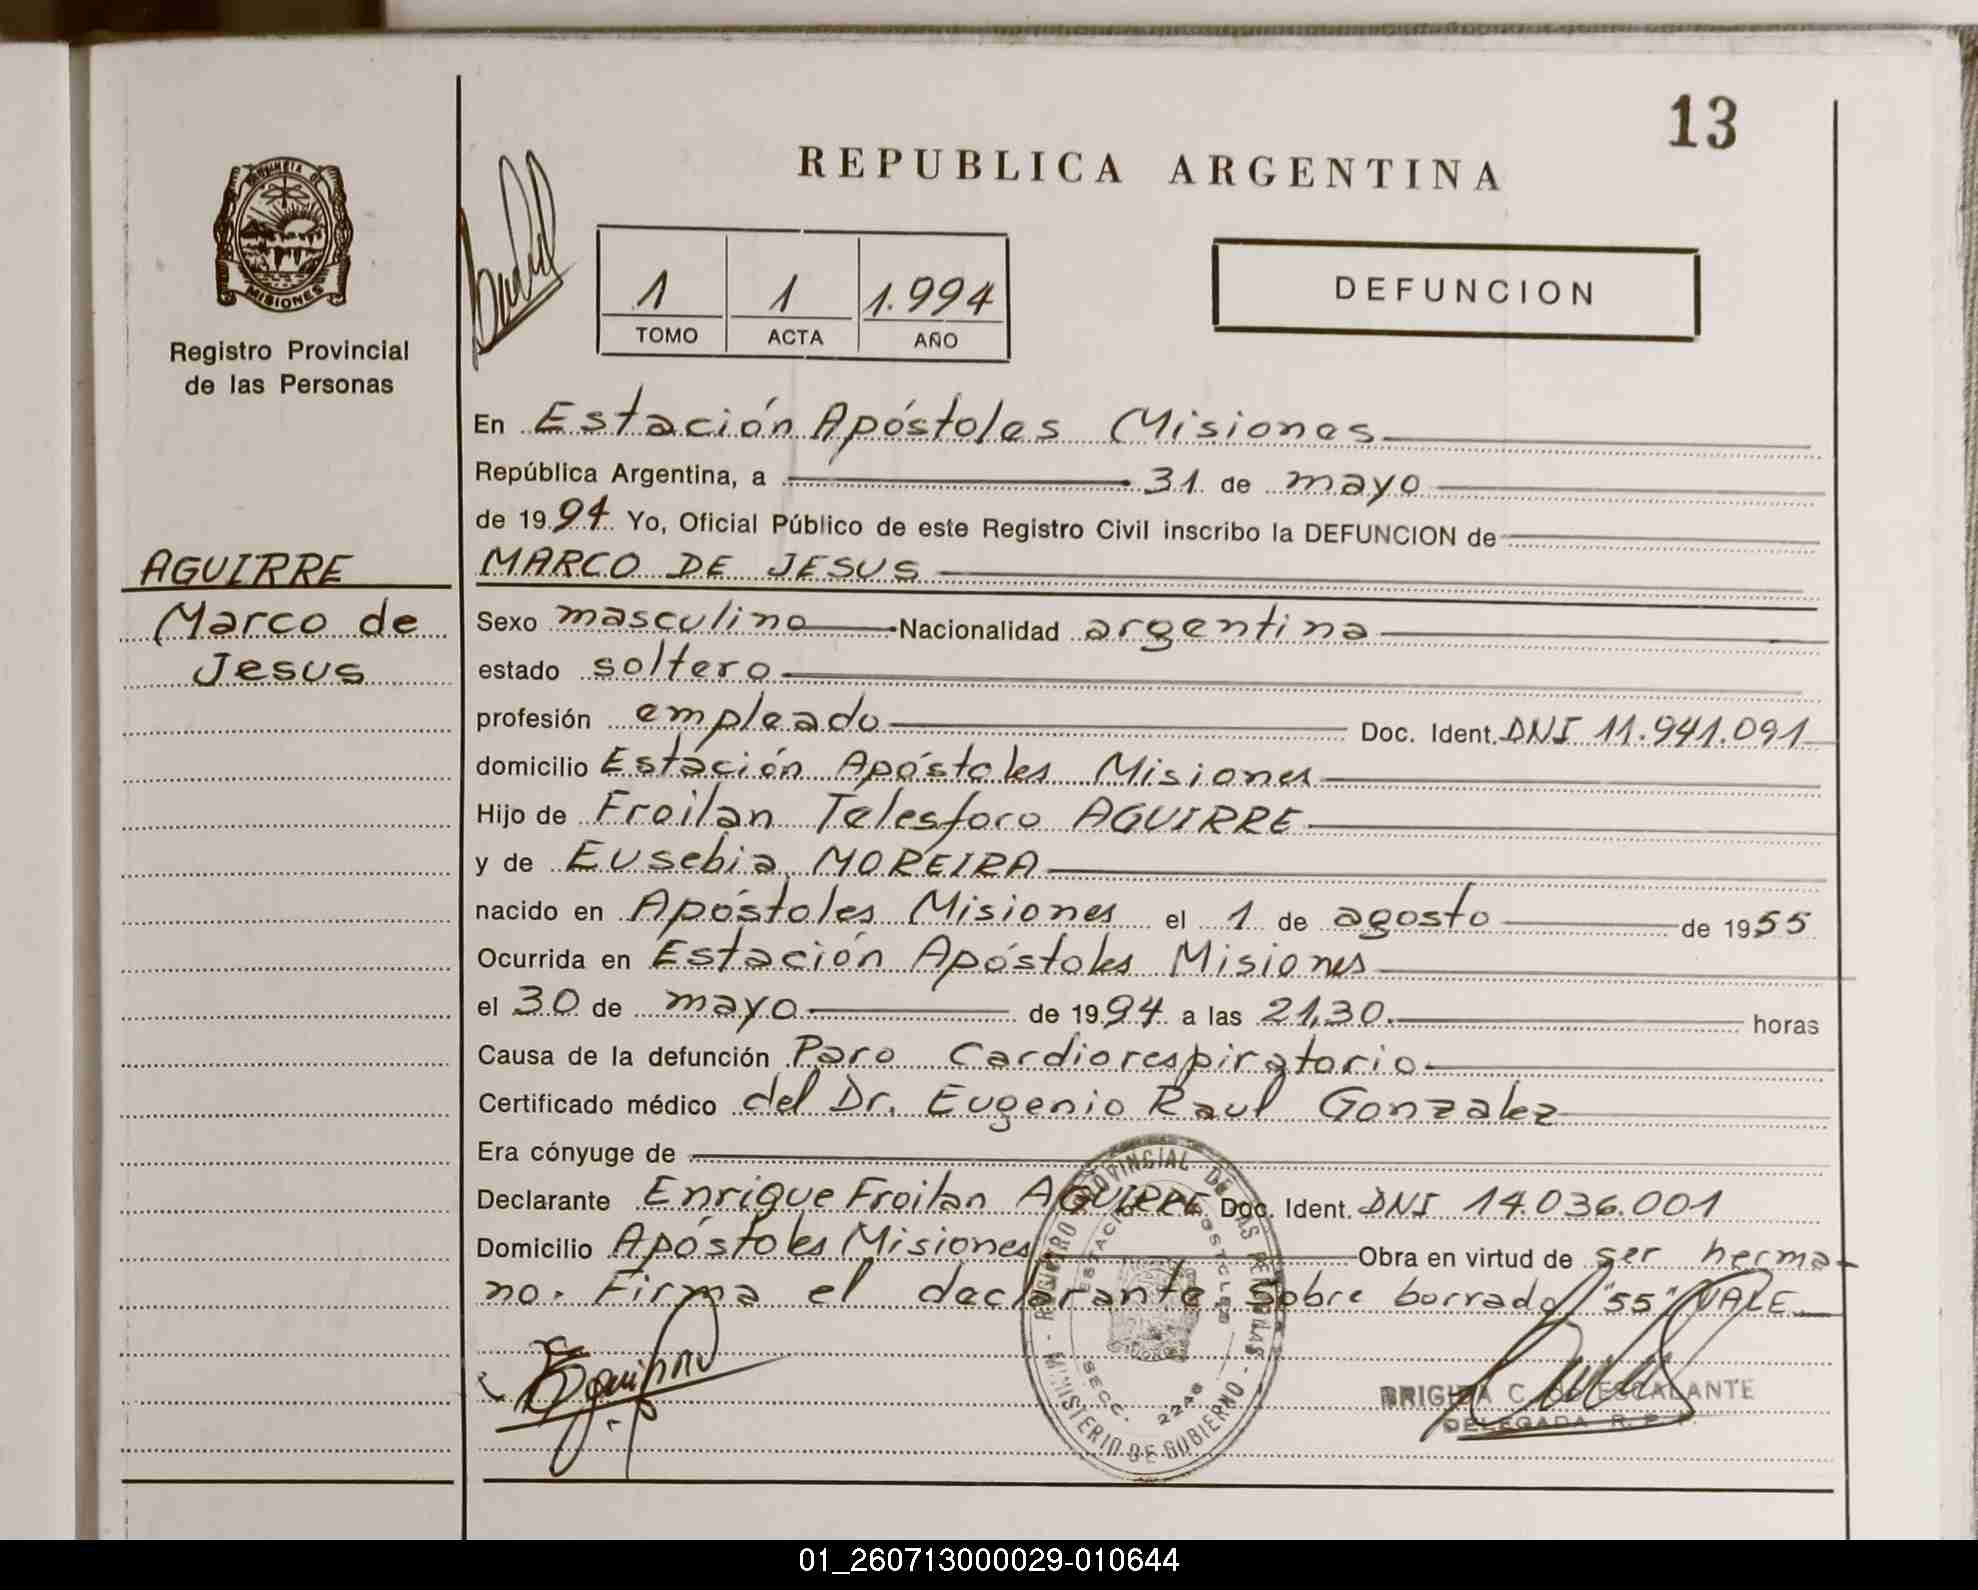 13
REPUBLICA ARGENTINA
PROVINCIA DE
MISIONES
Registro Provincial
de las Personas
1 1 1.994
TOMO ACTA AÑO
DEFUNCION
En Estación Apóstoles Misiones
República Argentina, a 31 de mayo
de 1994 Yo, Oficial Público de este Registro Civil inscribo la DEFUNCION de
AGUIRRE
Marco de
Jesus
MARCO DE JESUS
Sexo masculino Nacionalidad argentina
estado soltero
profesión empleado Doc. Ident. DNI 11.941.091
domicilio Estación Apóstoles Misiones
Hijo de Froilan Telesforo AGUIRRE
y de Eusebia MOREIRA
nacido en Apóstoles Misiones el 1 de agosto de 1955
Ocurrida en Estación Apóstoles Misiones
el 30 de mayo de 1994 a las 21,30 horas
Causa de la defunción Paro Cardiorespiratorio
Certificado médico del Dr. Eugenio Raul Gonzalez
Era cónyuge de
Declarante Enrique Froilan AGUIRRE Doc. Ident. DNI 14.036.001
Domicilio Apóstoles Misiones Obra en virtud de ser herma-
no. Firma el declarante Sobre borrado "55" VALE
REGISTRO PROVINCIAL DE LAS PERSONAS - MINISTERIO DE GOBIERNO -
ESTACION APOSTOLES
SECC. 2246
BRIGIDA C. de ESCALANTE
DELEGADA R. P. P.
01_260713000029-010644